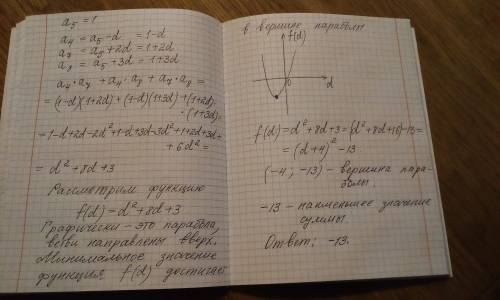 a₅ = 1
a₄ = a₅ - d = 1 - d
a₇ = a₅ + 2d = 1 + 2d
a₈ = a₅ + 3d = 1 + 3d
a₄·a₇ + a₄·a₈ + a₇·a₈ =
= (1-d)(1+2d) + (1-d)(1+3d) + (1+2d)·
·(1+3d) =
= 1-d+2d-2d²+1-d+3d-3d²+1+2d+3d+
+ 6d² =
= d² + 8d + 3
Рассмотрим функцию
f(d) = d² + 8d + 3
Графически - это парабола,
ветви направлены вверх.
Минимальное значение
функция f(d) достигает
в вершине параболы
f(d)
0
d
f(d) = d² + 8d + 3 = (d² + 8d + 16) - 13 =
= (d+4)² - 13
(-4; -13) - вершина пара-
болы.
-13 - наименьшее значение
суммы.
Ответ: -13.